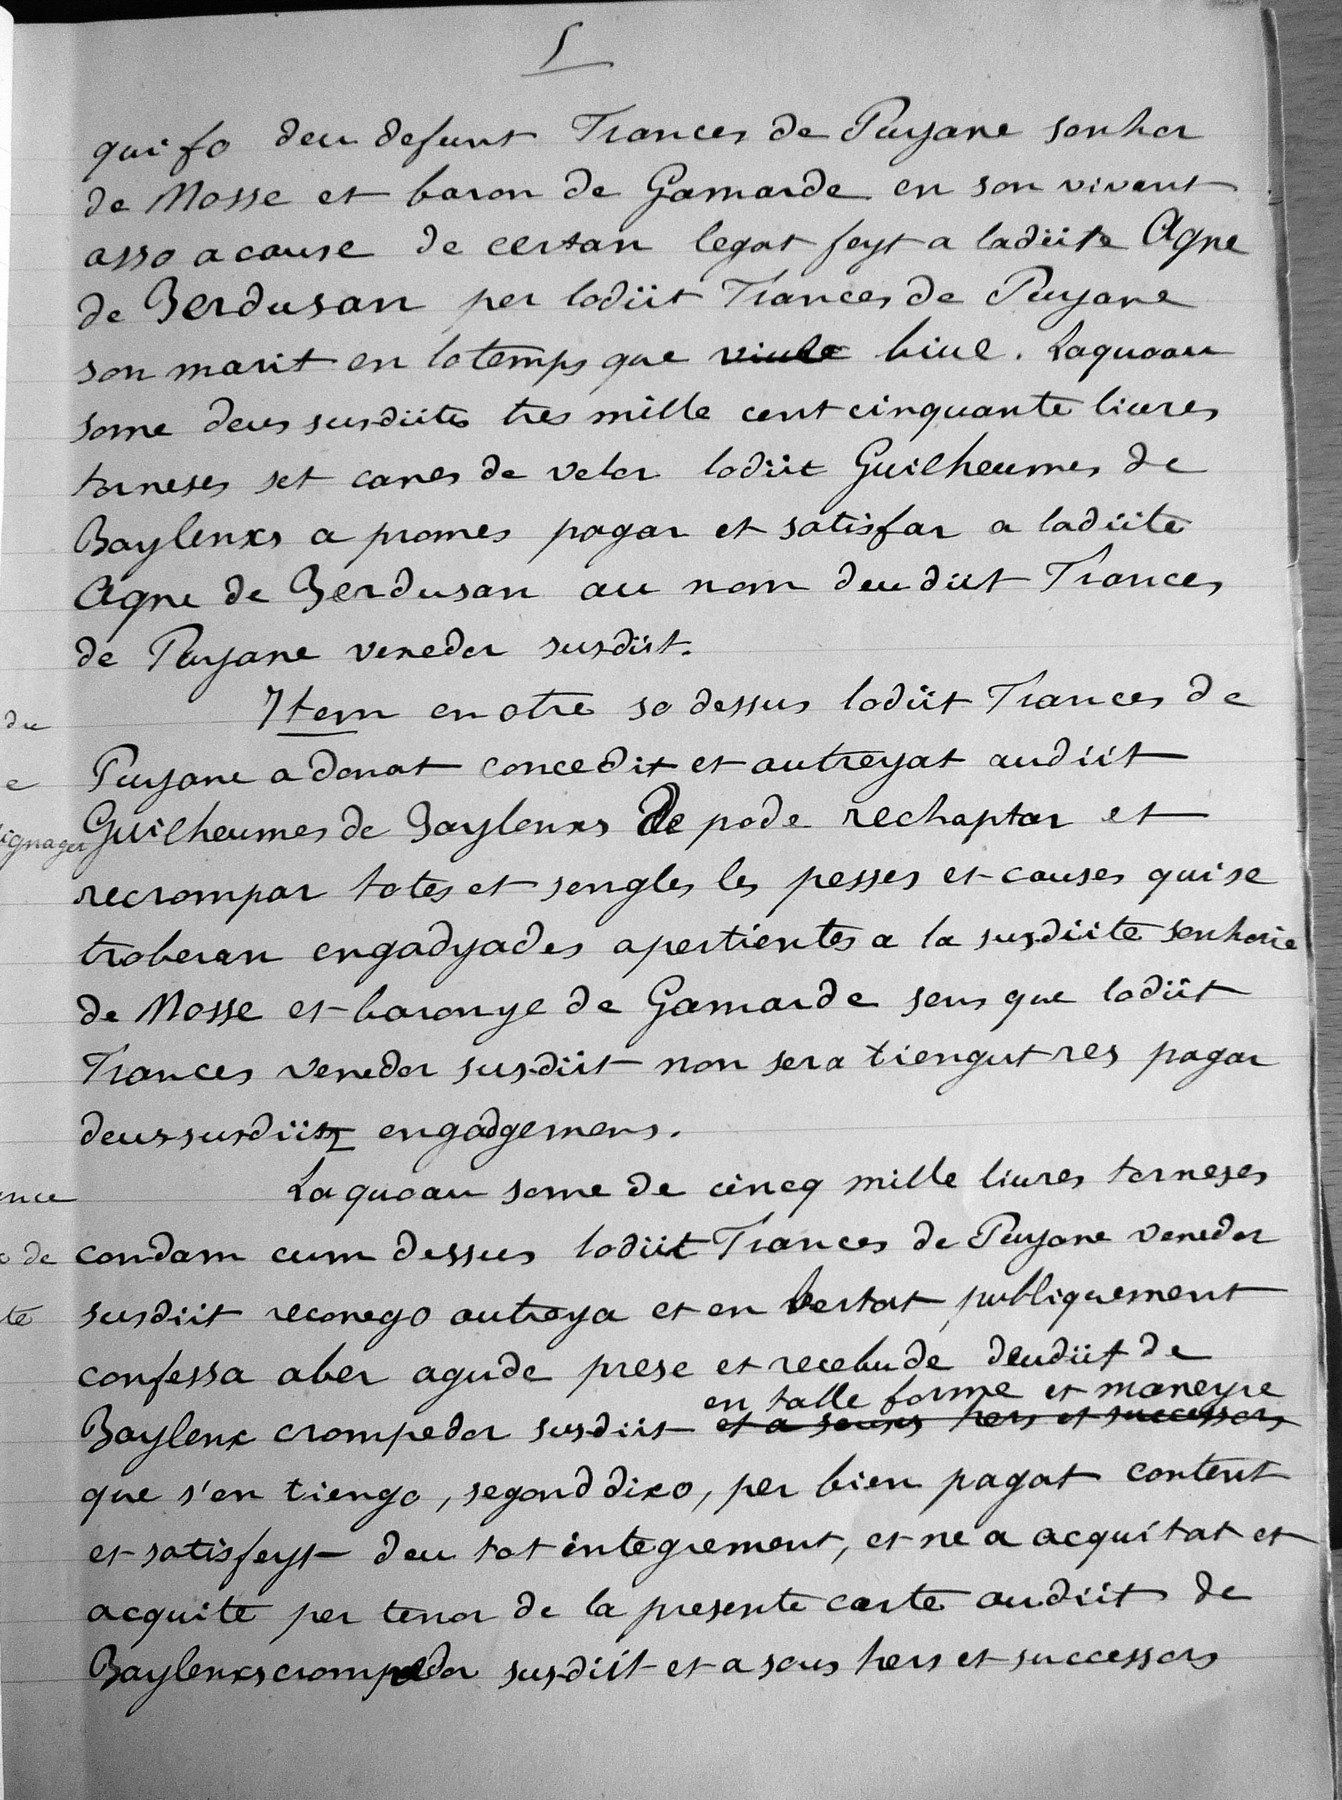 5
qui fo deu defunt Frances de Puyane senhor
de Mosse et baron de Gamarde en son vivent
asso a cause de certan legat feyt a ladiite Agne
de Berdusan per lodiit Frances de Puyane
son marit en lo temps que viule biue. Laquoau
some deus susdiites tres mille cent cinquante liures
torneses set canes de velor lodiit Guilheumes de
Baylenxs a promes pagar et satisfar a ladiite
Agne de Berdusan au nom deudiit Frances
de Puyane venedor susdiit.
Item en otre so dessus lodiit Frances de
Puyane a donat concedit et autreyat audiit
Guilheumes de Baylenxs de pode rechaptar et
recrompar totes et sengles les pesses et causes qui se
troberan engadyades apertientes a la susdiite senhorie
de Mosse et baronye de Gamarde sens que lodiit
Frances venedor susdiit non sera tiengut res pagar
deus susdiitz engadgemens.
Laquoau some de cincq mille liures torneses
condam cum dessus lodiit Frances de Puyane venedor
susdiit reconego autreya et en bertat publiquement
confessa aber agude prese et recebude deudiit de
en talle forme et maneyre
Baylenx crompedor susdiit et a souxs hers et successors
que s'en tiengo, segond dixo, per bien pagat content
et satisfeyt deu tot integrement, et ne a acquitat et
acquite per tenor de la presente carte audiit de
Baylenxs crompedor susdiit et a sous hers et successors
du
e
lignager
nce
de
te